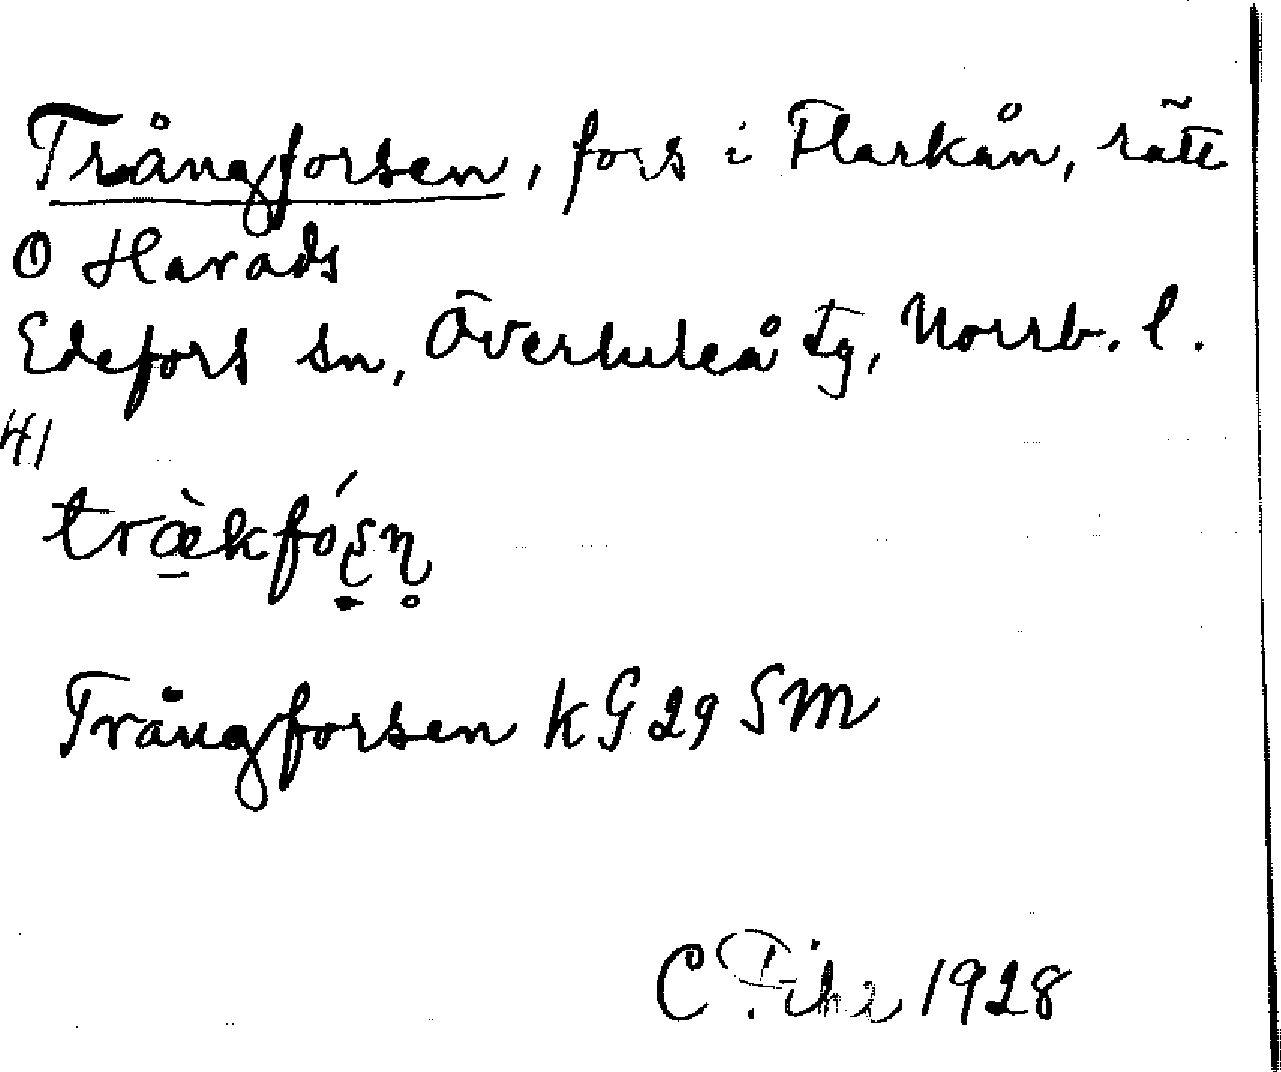 Trångforsen, fors i Flarkån, rätt
O Harads
Edefors sn, Överluleå tg, Norrb. l.
41
træ̀kfóṣṇ̥
Trångforsen KG 29 SM
C 1928